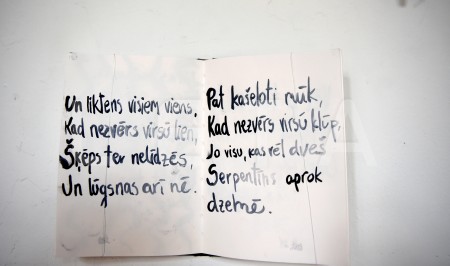 Un liktens visiem viens,
Kad nezvērs virsū lien,
Šķēps tev nelīdzēs,
Un lūgsnas arī nē.
Pat kašeloti mūk,
Kad nezvērs virsū klūp,
Jo visu, kas vēl dveš
Serpentīns aprok
dzelmē.